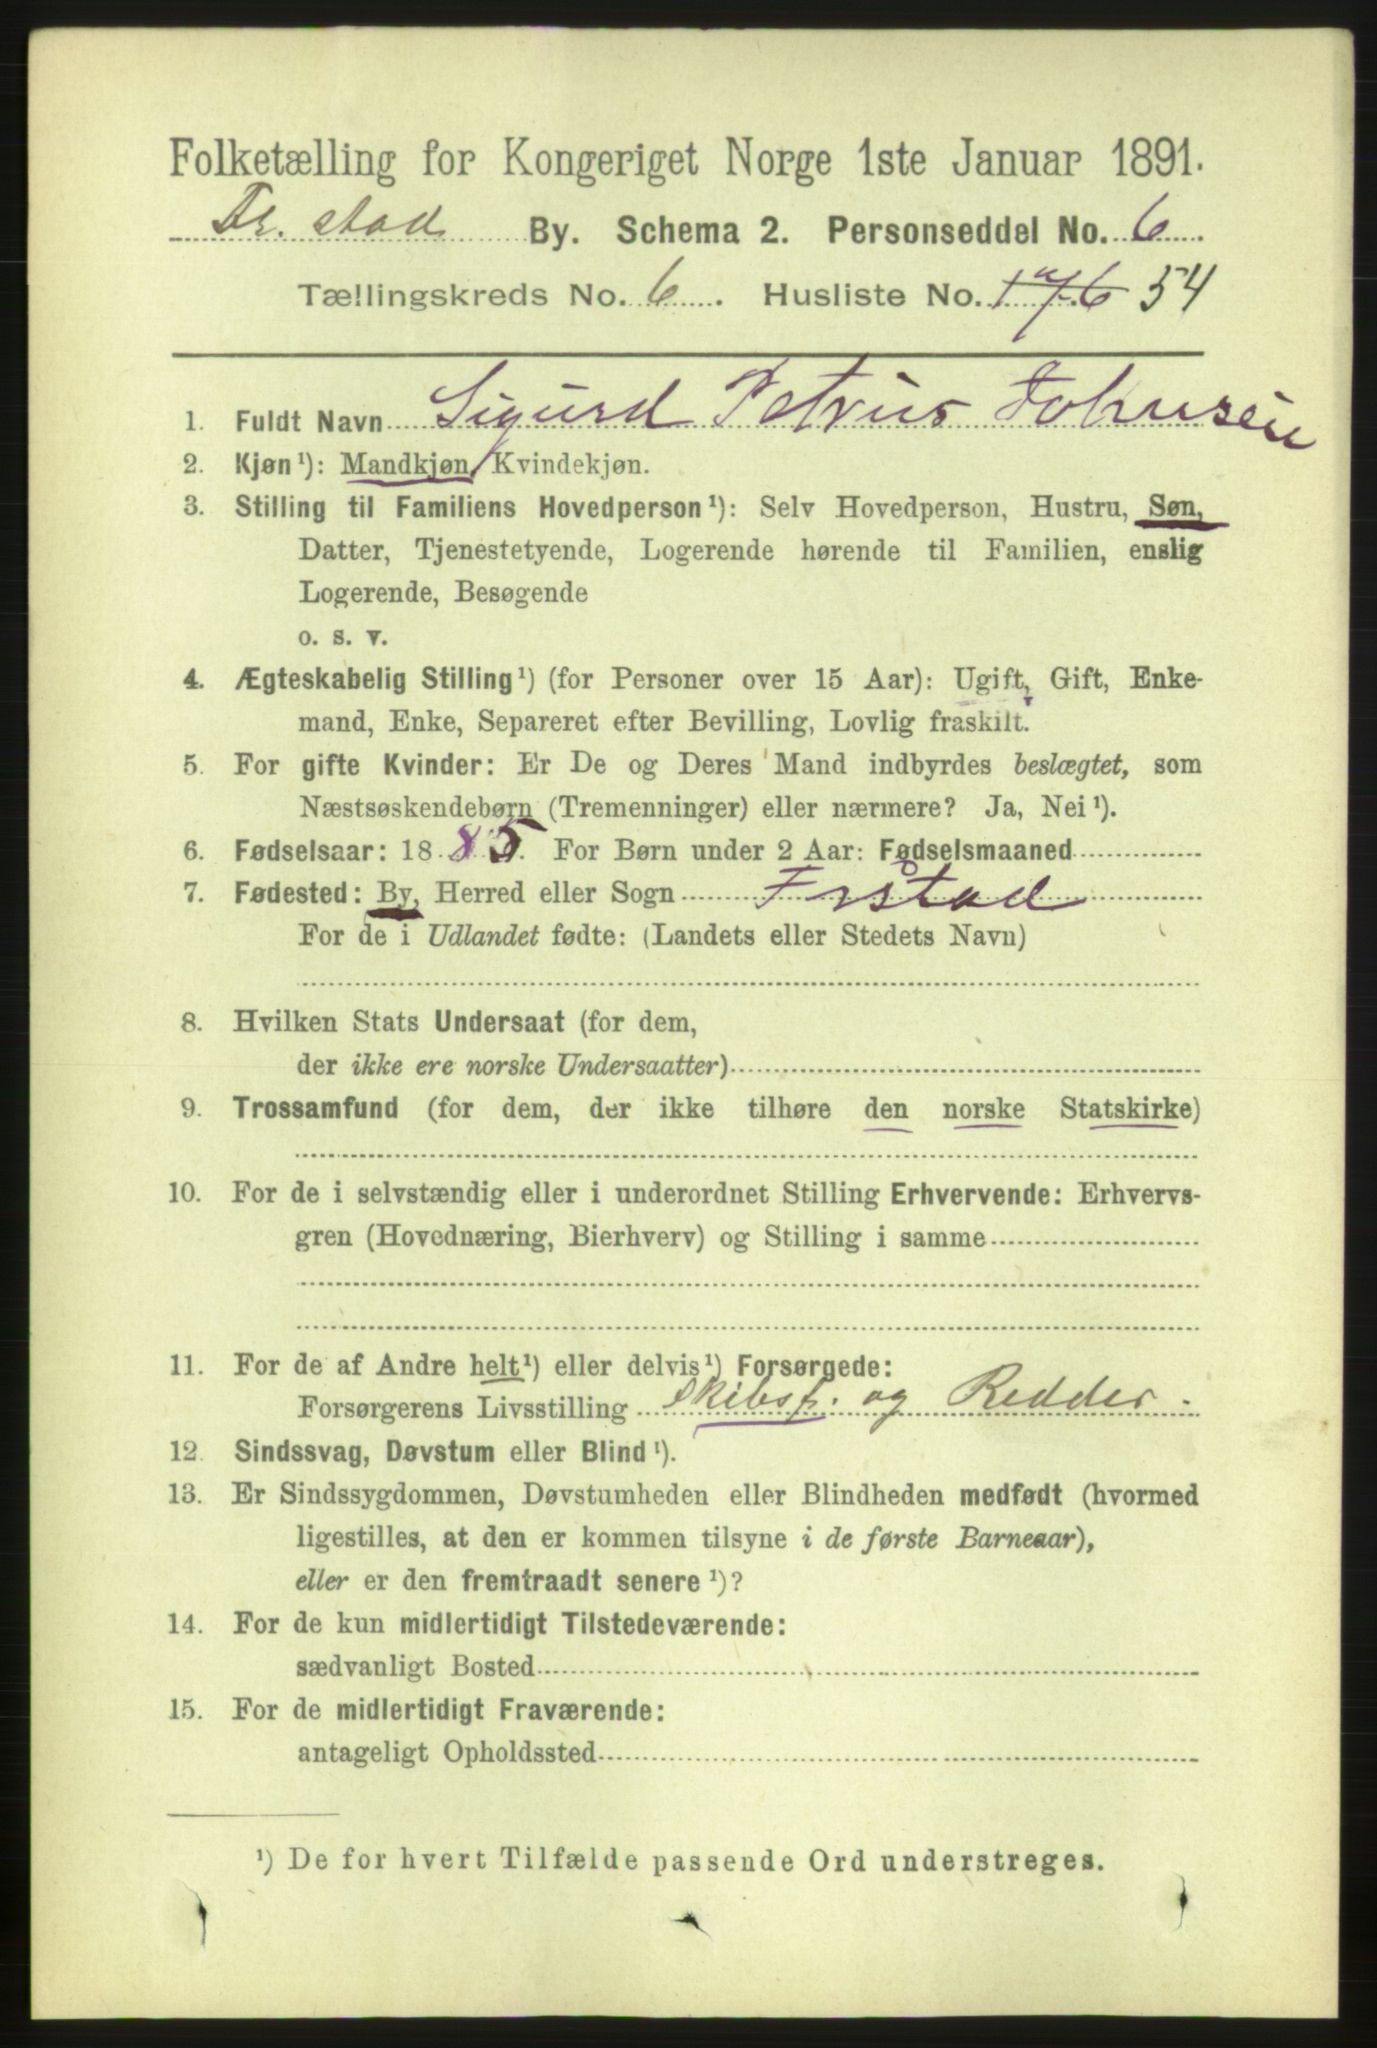 Folketælling for Kongeriget Norge 1ste Januar 1891.
Fr. stad By. Schema 2. Personseddel No. 6
Tællingskreds No. 6. Husliste No. 54
1. Fuldt Navn Sigurd Petrus Johnsen
2. Kjøn¹): Mandkjøn, Kvindekjøn.
3. Stilling til Familiens Hovedperson¹): Selv Hovedperson, Hustru, Søn,
Datter, Tjenestetyende, Logerende hørende til Familien, enslig
Logerende, Besøgende
o. s. v.
4. Ægteskabelig Stilling¹) (for Personer over 15 Aar): Ugift, Gift, Enke-
mand, Enke, Separeret efter Bevilling, Lovlig fraskilt.
5. For gifte Kvinder: Er De og Deres Mand indbyrdes beslægtet, som
Næstsøskendebørn (Tremenninger) eller nærmere? Ja, Nei¹).
6. Fødselsaar: 1885. For Børn under 2 Aar: Fødselsmaaned
7. Fødested: By, Herred eller Sogn Frstad
For de i Udlandet fødte: (Landets eller Stedets Navn)
8. Hvilken Stats Undersaat (for dem,
der ikke ere norske Undersaatter)
9. Trossamfund (for dem, der ikke tilhøre den norske Statskirke)
10. For de i selvstændig eller i underordnet Stilling Erhvervende: Erhvervs-
gren (Hovednæring, Bierhverv) og Stilling i samme
11. For de af Andre helt¹) eller delvis¹) Forsørgede:
Forsørgerens Livsstilling Skibsf. og Redder.
12. Sindssvag, Døvstum eller Blind¹).
13. Er Sindssygdommen, Døvstumheden eller Blindheden medfødt (hvormed
ligestilles, at den er kommen tilsyne i de første Barneaar),
eller er den fremtraadt senere¹)?
14. For de kun midlertidigt Tilstedeværende:
sædvanligt Bosted
15. For de midlertidigt Fraværende:
antageligt Opholdssted
¹) De for hvert Tilfælde passende Ord understreges.